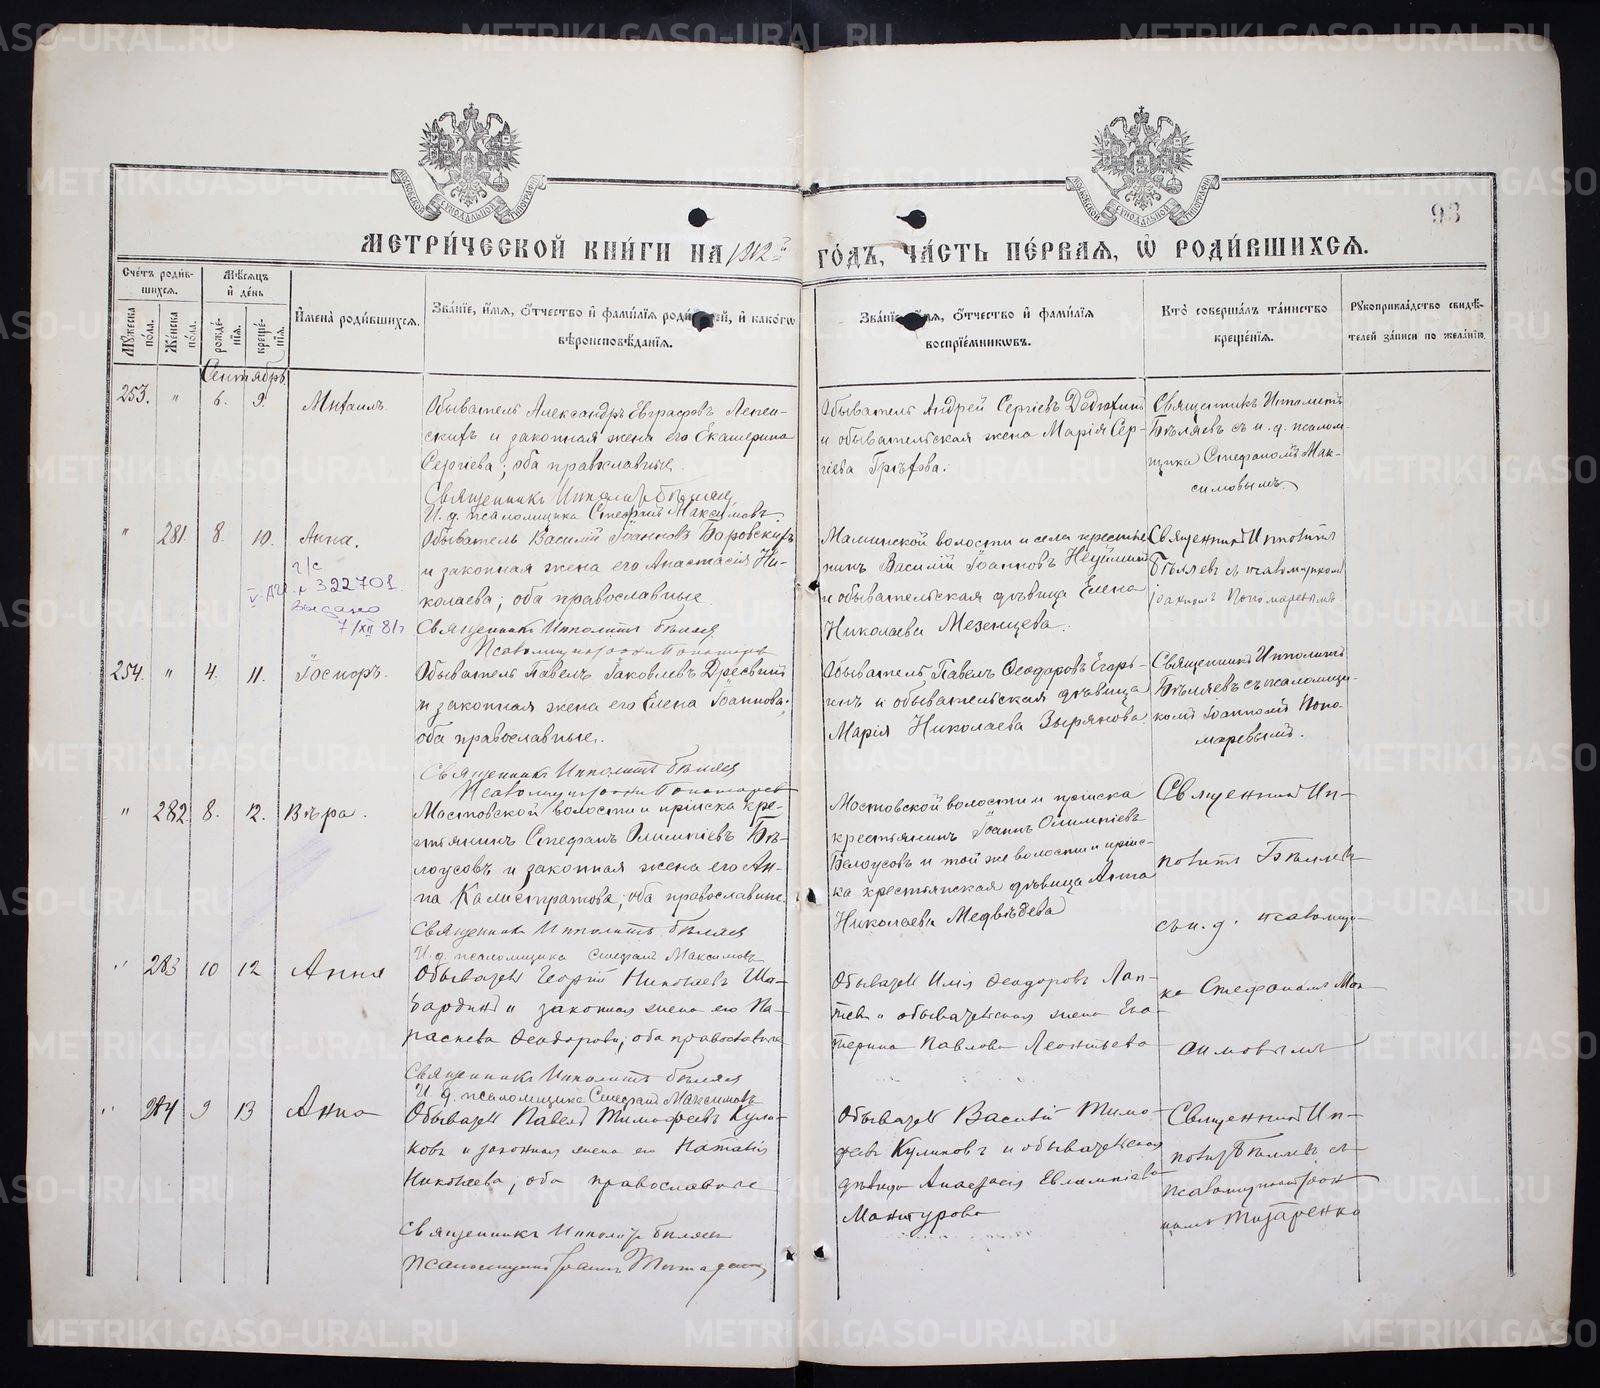 METRIKI.GASO-URAL.RU
93
МЕТРИ́ЧЕСКОЙ КНИ́ГИ НА 1912й ГО́ДЪ, ЧА́СТЬ ПЕ́РВАЯ, Ѡ҆ РОДИ́ВШИХСЯ.
Сче́тъ роди́в-
шихся.
Мѣ́сяцъ
и҆ де́нь
И҆мена̀ роди́вшихся.
Зва́нїе, и҆́мя, ѻ҆́тчество и҆ фамѝлїѧ роди́телей, и҆ како́гѡ
вѣроисповѣ́данїѧ.
Зва́нїе, и҆́мя, ѻ҆́тчество и҆ фамѝлїѧ
воспрїе́мникѡвъ.
Кто̀ соверша́лъ та́инство
креще́нїѧ.
Рꙋкоприкла́дство свидѣ́-
телей за́писи по жела́нїю.
Мꙋ́жеска
по́ла.
Же́нска
по́ла.
рожде́-
нїѧ.
креще́-
нїѧ.
Сентябрь
253. " 6. 9. Михаилъ.
Обыватель Александръ Евграфовъ Лепен-
скихъ и законная жена его Екатерина
Сергіева; оба православные.
Священникъ Ипполитъ Бѣляев
И. д. псаломщика Стефанъ Максимовъ
Обыватель Андрей Сергіевъ Дедюхинъ
и обывательская жена Марія Сер-
гіева Грѣхова.
Священникъ Ипполитъ
Бѣляевъ съ и. д. псалом-
щика Стефаномъ Мак-
симовымъ.
" 281. 8. 10. Анна.
г/с
V-АИ № 322701
Выдано
7/XII 81г
Обыватель Василій Іоанновъ Боровскихъ
и законная жена его Анастасія Ни-
колаева; оба православные.
Священникъ Ипполитъ Бѣляев
Псаломщикъ Іоаннъ Пономаревъ
волости и села крестья-
нинъ Василій Іоанновъ
и обывательская дѣвица Елена
Николаева Мезенцева.
Священникъ Ипполитъ
Бѣляевъ съ псаломщикомъ
Іоанномъ Пономаревымъ
254. " 4. 11. Іосифъ.
Обыватель Павелъ Іаковлевъ Дресвянинъ
и законная жена его Елена Іоаннова;
оба православные.
Священникъ Ипполитъ Бѣляев
Псаломщикъ Іоаннъ Пономаревъ
Обыватель Павелъ Ѳеодоровъ Егорь-
инъ и обывательская дѣвица
Марія Николаева Зырянова.
Священникъ Ипполитъ
Бѣляевъ съ псаломщи-
комъ Іоанномъ Поно-
маревымъ.
" 282. 8. 12. Вѣра.
Мостовской волости и пріиска кре-
стьянинъ Стефанъ Олимпіевъ Бѣ-
лоусовъ и законная жена его Ан-
на Калистратова; оба православные.
Священникъ Ипполитъ Бѣляев
И. д. псаломщика Стефанъ Максимовъ
Мостовской волости и пріиска
крестьянинъ Іоаннъ Олимпіевъ
Белоусовъ и той же волости и пріис-
ка крестьянская дѣвица Анна
Николаева Медвѣдева
Священникъ Ип-
политъ Бѣляевъ
съ и. д. псаломщи-
ка Стефаномъ Мак-
симовымъ
" 283 10 12 Анна
Обыватель Георгій Николаевъ Ша-
бардинъ и законная жена его Па-
раскева Ѳеодорова; оба православные
Священникъ Ипполитъ Бѣляев
И. д. псаломщика Стефанъ Максимовъ
Обыватель Илія Ѳеодоровъ Лап-
тевъ и обывательская жена Ека-
терина Павлова Леонтьева
" 284 9 13 Анна
Обыватель Павелъ Тимофеевъ Кули-
ковъ и законная жена его Наталія
Николаева; оба православные
Священникъ Ипполитъ Бѣляевъ
Псаломщикъ Іоаннъ
Обыватель Василій Тимо-
феевъ Куликовъ и обывательская
дѣвица Анастасія Евлампіева
Мантурова
Священникъ Ип-
политъ Бѣляевъ съ
псаломщикомъ Іоан-
номъ